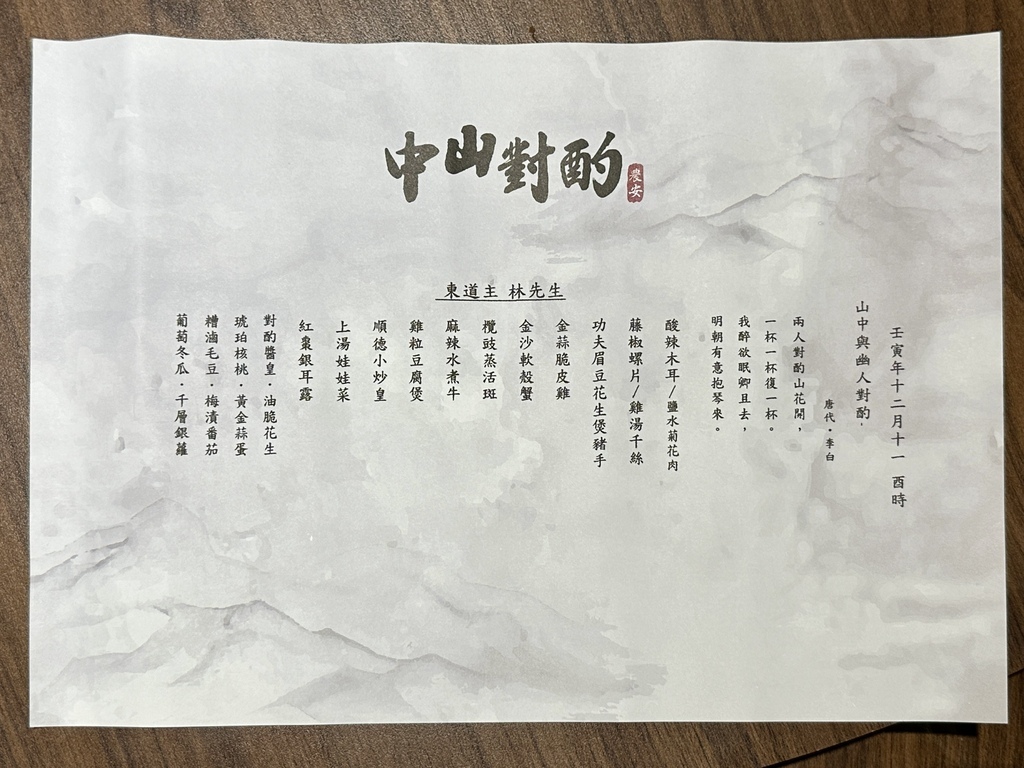 中山對酌
農安
東道主 林先生
壬寅年十二月十一 酉時
山中與幽人對酌
唐代·李白
兩人對酌山花開，
一杯一杯復一杯。
我醉欲眠卿且去，
明朝有意抱琴來。
酸辣木耳/鹽水菊花肉
藤椒螺片/雞湯千絲
功夫眉豆花生煲豬手
金蒜脆皮雞
金沙軟殼蟹
欖豉蒸活斑
麻辣水煮牛
雞粒豆腐煲
順德小炒皇
上湯娃娃菜
紅棗銀耳露
對酌醬皇·油脆花生
琥珀核桃·黃金蒜蛋
糟滷毛豆·梅漬番茄
葡萄冬瓜·千層銀蘿